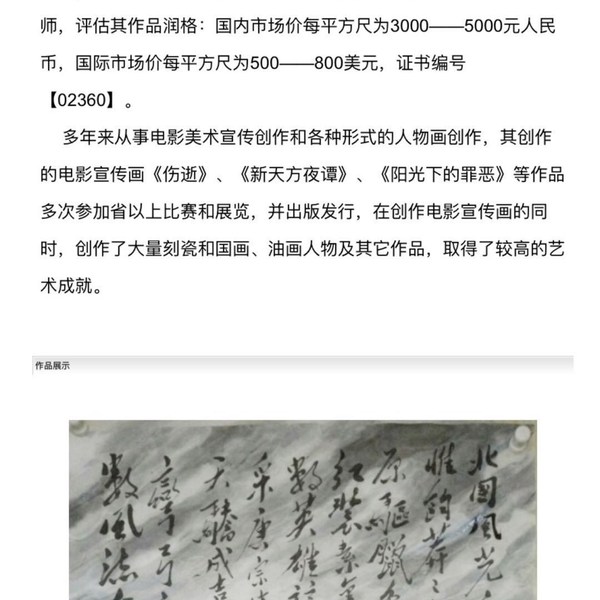 师，评估其作品润格：国内市场价每平方尺为3000——5000元人民
币，国际市场价每平方尺为500——800美元，证书编号
【02360】。
多年来从事电影美术宣传创作和各种形式的人物画创作，其创作
的电影宣传画《伤逝》、《新天方夜谭》、《阳光下的罪恶》等作品
多次参加省以上比赛和展览，并出版发行，在创作电影宣传画的同
时，创作了大量刻瓷和国画、油画人物及其它作品，取得了较高的艺
术成就。
作品展示
北国风光
惟余莽
原驰蜡
红装素
数英雄
采唐宗
天骄成吉
数风流